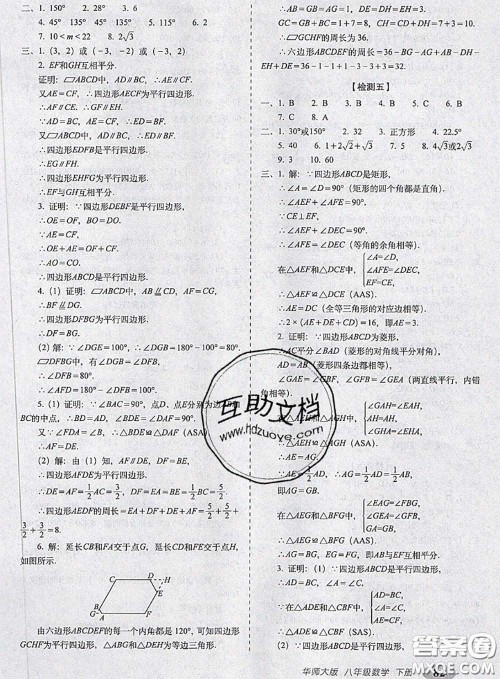 二、1. 150° 2. 28 3.
4. 45° 135° 45° 135° 5. 100° 6. 9
7. 10＜m＜22 8. 2√3
三、1.（3，2）或（-3，-2）或（-3，2）
2. EF和GH互相平分.
证明：∵▱ABCD中，AD∥BC，∴AF∥EC.
又AE=CF，∴四边形AECF为平行四边形.
∴AF∥CE. ∴GF∥EH.
∵AD=BC，AE=CF，∴DE=BF.
又▱ABCD中，AD∥BC，
∴四边形EDFB是平行四边形.
∴EG∥FH.
∴四边形EHFG为平行四边形.
∴EF与GH互相平分.
3. 证明：∵四边形DEBF是平行四边形，
∴OE=OF，BO=DO.
∵AE=CF，
∴OE+AE=OF+CF.
∴AO=CO.
∴四边形ABCD是平行四边形.
4.（1）证明：▱ABCD中，AB CD，AF=CG，
∴BF DG.
∴四边形DFBG为平行四边形.
（2）解：∵∠DGE=100°，∴∠DGB=180°-100°=80°.
在▱DFBG中，有∠DGB=∠DFB，
∴∠DFB=80°.
∴∠AFD=100°.
5.（1）证明：∵∠BAC=90°，点D、点E分别为边
BC的中点，∴BD=AD，∠DBF=∠DAF，∠AFE=90°.
又∵∠FDA=∠B，∴△BDE≌△DAF（ASA）.
∴AF=DE.
（2）解：由（1）知，AF=DE，AF∥DE，
∴四边形AFDE为平行四边形.
∴DE=AF=1/2AC=3/2，DF=AE=1/2BC=5/2.
∴四边形AEDF的周长=AE+DE+DF+AF=5/2+5/2+
3/2+3/2=8.
6. 解：延长CB和FA交于点G，延长CD和FE交于点H，
如图所示.
C D H
E
B
G A F
由六边形ABCDEF的每一个内角都是120°，可知四边形
GCHF为平行四边形，△AGB和△DHE为等边三角形.
∴GB=AB=1，DH=HE=3.
GC=GB+BC=1+7=8，CH=CD+DH=7+3=10.
∴▱GCHF的周长为36.
∴六边形ABCDEF的周长=36-1-1+1-3-3+3=32.
【检测五】
一、1. B 2. B 3. D 4. A 5. C
二、1. 30°或150° 2. 32 3. 正方形 4. 22.5°
5. 75° 6. 1+2√2+√3 7. 5 8. 4√3或2√3
9. 3 10. √3
三、1. 解：∵四边形ABCD是矩形，
∴∠A=∠D=90°（矩形的四个角都是直角）.
∴∠AEF+∠AFE=90°.
∵CE⊥EF，
∴∠AEF+∠DEC=90°.
∴∠AFE=∠DEC（等角的余角相等）.
在△AEF和△DCE中，
∠A=∠D，
∠AFE=∠DEC，
EF=CE，
∴△AEF≌△DCE（AAS）.
∴AE=DC（全等三角形的对应边相等）.
∴2×（AE+DE+DC）=16，即AE=3.
2. 证明：∵四边形ABCD为菱形，
∴AC平分∠BAD（菱形的对角线平分对角），
AB∥CD（菱形四条边都相等），
∴∠GAE=∠GFB，∠AEH=∠GEA（两直线平行，内错
角相等）.
在△AEG和△AEH中，
∠GAH=∠EAH，
AH=AH，
∠GHA=∠EHA，
∴△AEH≌△AGH（ASA）.
∴AE=AG.
又AE=1/2AD，∴AG=1/2AB，
即AG=BG.
在△AEG和△FBG中，
∠AEG=∠FBG，
AG=BG，
∠EGA=∠FGB，
∴△AEG≌△FBG.
∴AG=BG，EG=FG，即AB与EF互相平分.
3. 证明：（1）∵四边形ABCD为平行四边形，
∴AD=BC，∠ADE=∠CBF.
在△ADE和△CBF中，
AD=BC，
∠ADE=∠CBF，
DE=BF，
∴△ADE≌△CBF（SAS）.
（2）∵四边形ABCD是平行四边形，
互助文档
www.hdzuoye.com
华师大版 八年级数学 下册
82